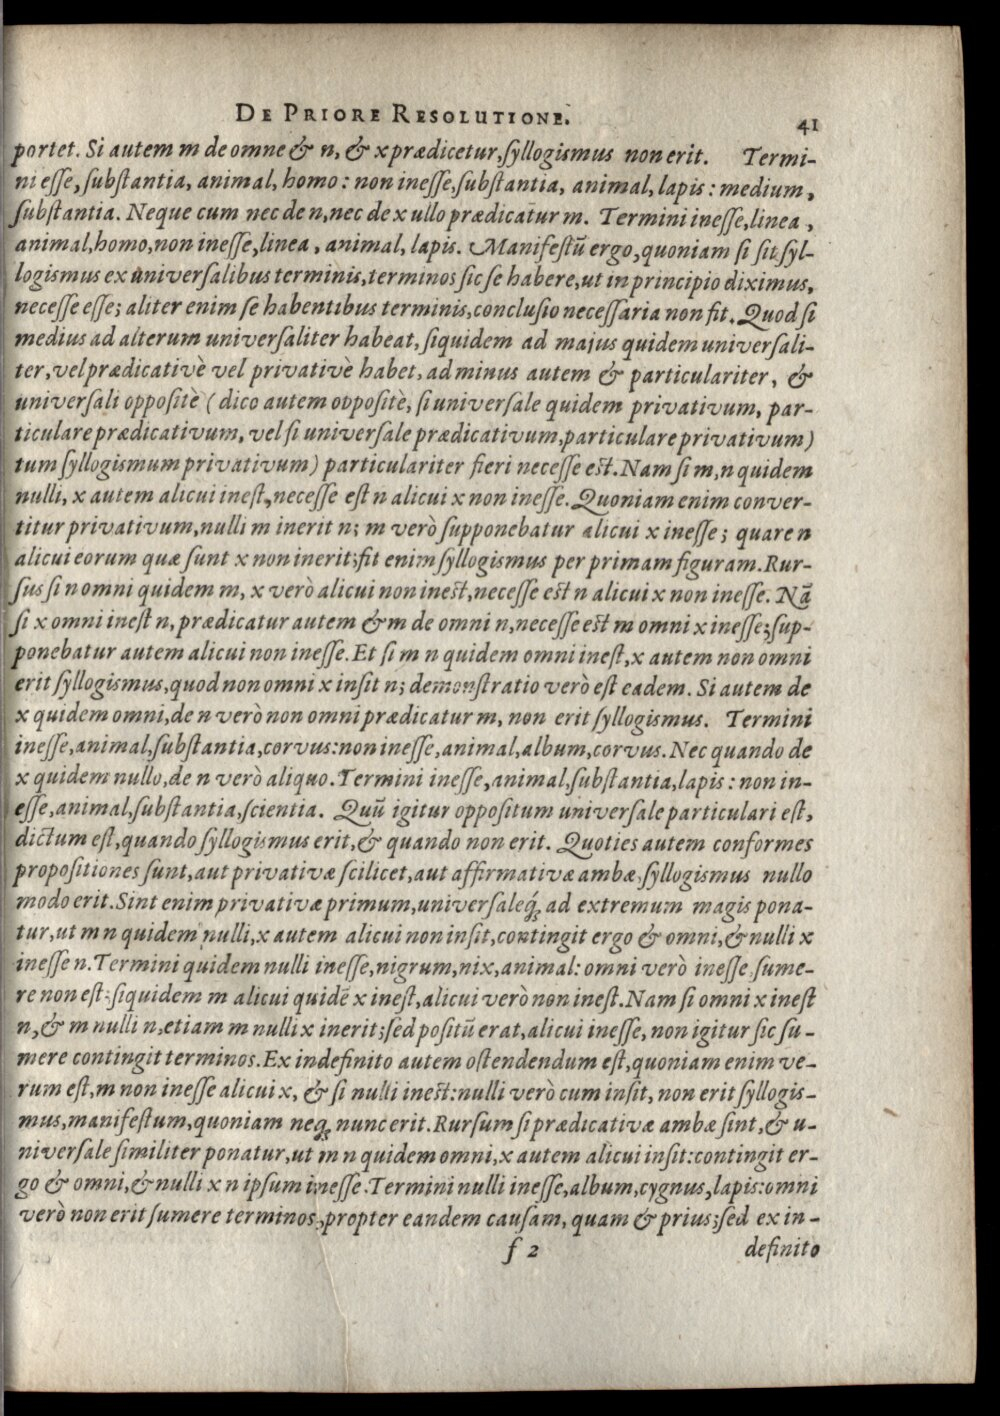 DE PRIORE RESOLUTIONE.
41
portet. Si autem m de omne & n, & x prædicetur, syllogismus non erit. Termi-
ni esse, substantia, animal, homo: non inesse, substantia, animal, lapis: medium,
substantia. Neque cum nec de n, nec de x ullo prædicatur m. Termini inesse, linea,
animal, homo, non inesse, linea, animal, lapis. Manifestũ ergo, quoniam si sit syl-
logismus ex universalibus terminis, terminos sic se habere, ut in principio diximus,
necesse esse; aliter enim se habentibus terminis, conclusio necessaria non fit. Quod si
medius ad alterum universaliter habeat, siquidem ad majus quidem universali-
ter, vel prædicativè vel privativè habet, ad minus autem & particulariter, &
universali oppositè (dico autem oppositè, si universale quidem privativum, par-
ticulare prædicativum, vel si universale prædicativum, particulare privativum)
tum syllogismum privativum) particulariter fieri necesse est. Nam si m, n quidem
nulli, x autem alicui inest, necesse est n alicui x non inesse. Quoniam enim conver-
titur privativum, nulli m inerit n; m verò supponebatur alicui x inesse; quare n
alicui eorum quæ sunt x non inerit; fit enim syllogismus per primam figuram. Rur-
sus si n omni quidem m, x verò alicui non inest, necesse est n alicui x non inesse. Nã
si x omni inest n, prædicatur autem & m de omni n, necesse est m omni x inesse; sup-
ponebatur autem alicui non inesse. Et si m n quidem omni inest, x autem non omni
erit syllogismus, quod non omni x insit n; demonstratio verò est eadem. Si autem de
x quidem omni, de n verò non omni prædicatur m, non erit syllogismus. Termini
inesse, animal, substantia, corvus: non inesse, animal, album, corvus. Nec quando de
x quidem nullo, de n verò aliquo. Termini inesse, animal, substantia, lapis: non in-
esse, animal, substantia, scientia. Quũ igitur oppositum universale particulari est,
dictum est, quando syllogismus erit, & quando non erit. Quoties autem conformes
propositiones sunt, aut privativæ scilicet, aut affirmativæ ambæ, syllogismus nullo
modo erit. Sint enim privativæ primum, universaleq́; ad extremum magis pona-
tur, ut m n quidem nulli, x autem alicui non insit, contingit ergo & omni, & nulli x
inesse n. Termini quidem nulli inesse, nigrum, nix, animal: omni verò inesse sume-
re non est; siquidem m alicui quidẽ x inest, alicui verò non inest. Nam si omni x inest
n, & m nulli n, etiam m nulli x inerit; sed positũ erat, alicui inesse, non igitur sic su-
mere contingit terminos. Ex indefinito autem ostendendum est, quoniam enim ve-
rum est, m non inesse alicui x, & si nulli inest: nulli verò cum insit, non erit syllogis-
mus, manifestum, quoniam neq; nunc erit. Rursum si prædicativæ ambæ sint, & u-
niversale similiter ponatur, ut m n quidem omni, x autem alicui insit: contingit er-
go & omni, & nulli x n ipsum inesse. Termini nulli inesse, album, cygnus, lapis: omni
verò non erit sumere terminos, propter eandem causam, quam & prius; sed ex in-
f 2
definito